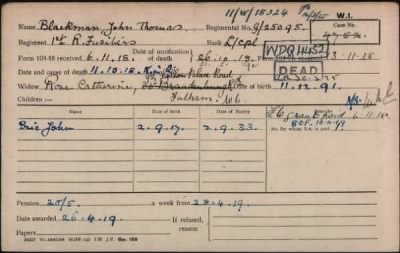 11/W/18324 W.1.
Name Blackman John Thomas Regimental No. G/25095. Case No.
Regiment 1st R. Fusiliers L/cpl WDQ14452 3-11-18
Date of notification
Form 104-88 received 6.11.18. of death 26.10.18. DEAD
Date and cause of death 11.10.18. Palace Road
Widow Rose Catherine, Date of birth 11.12.91.
Fulham. W6.
Children:—
Eric John 2.9.17. 2.9.33. £6 grant paid 6.11.18.
No. for whom S.A. is paid
Pension 20/5 a week from 28.4.19.
Date awarded 26.4.19. If refused,
reason
Papers